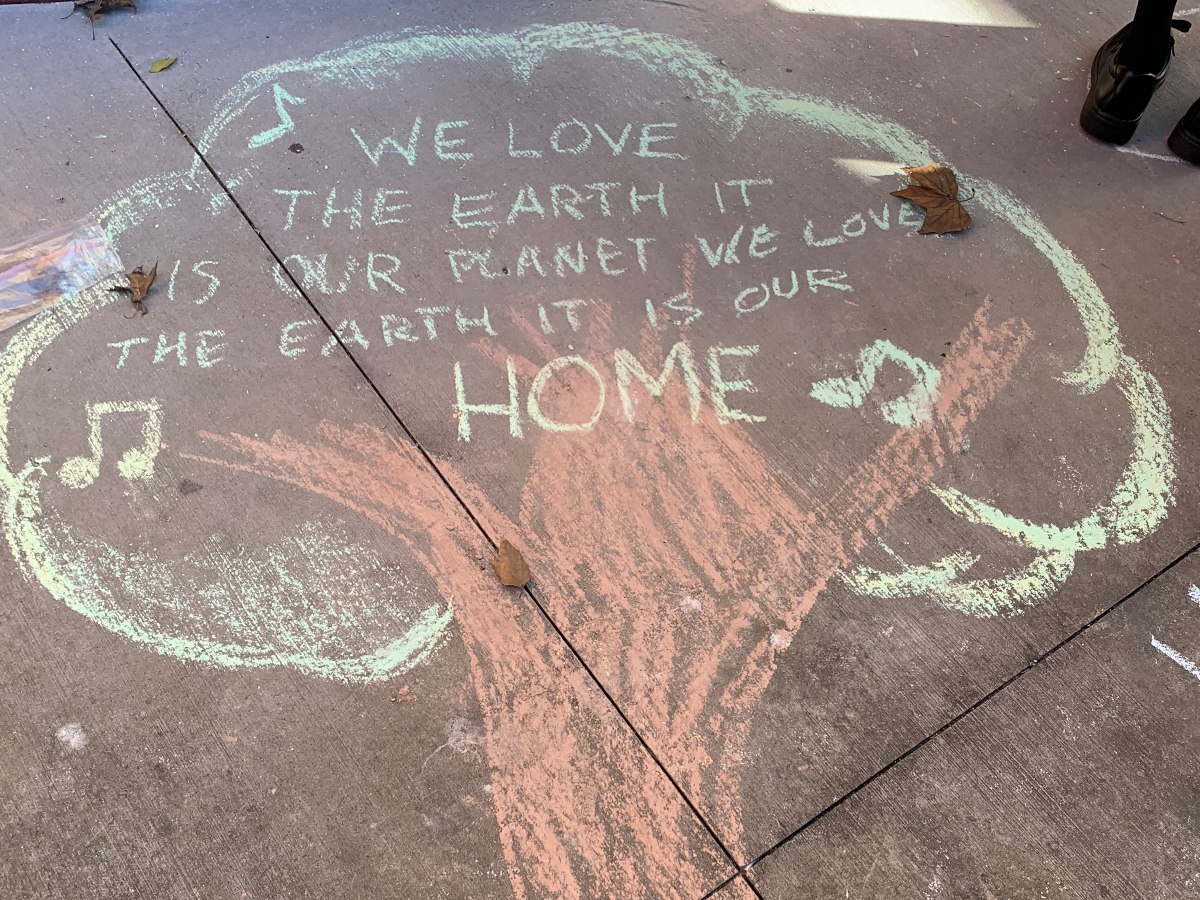 WE LOVE
THE EARTH IT
IS OUR PLANET WE LOVE
THE EARTH IT IS OUR
HOME